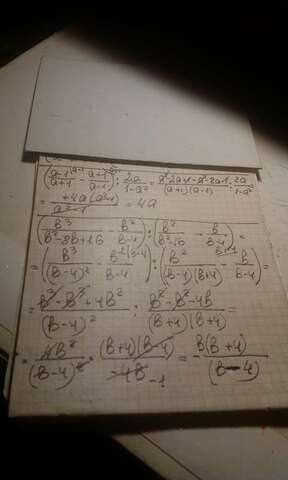 (a-1/a+1 - a+1/a-1) : 2a/1-a² = a²-2a+1-a²-2a-1/(a+1)(a-1) : 2a/1-a²
= +4a(a²-1)/a²-1 = 4a
(b³/b²-8b+16 - b²/b-4) : (b²/b²-16 - b/b-4) =
= (b³/(b-4)² - b²(b-4/b-4) : (b²/(b-4)(b+4) - b/b-4) =
= b³-b³+4b²/(b-4)² : b²-b²-4b/(b+4)(b+4) =
= 4b²/(b-4)² · (b+4)(b-4)/-4b -1 = -b(b+4)/(b-4)